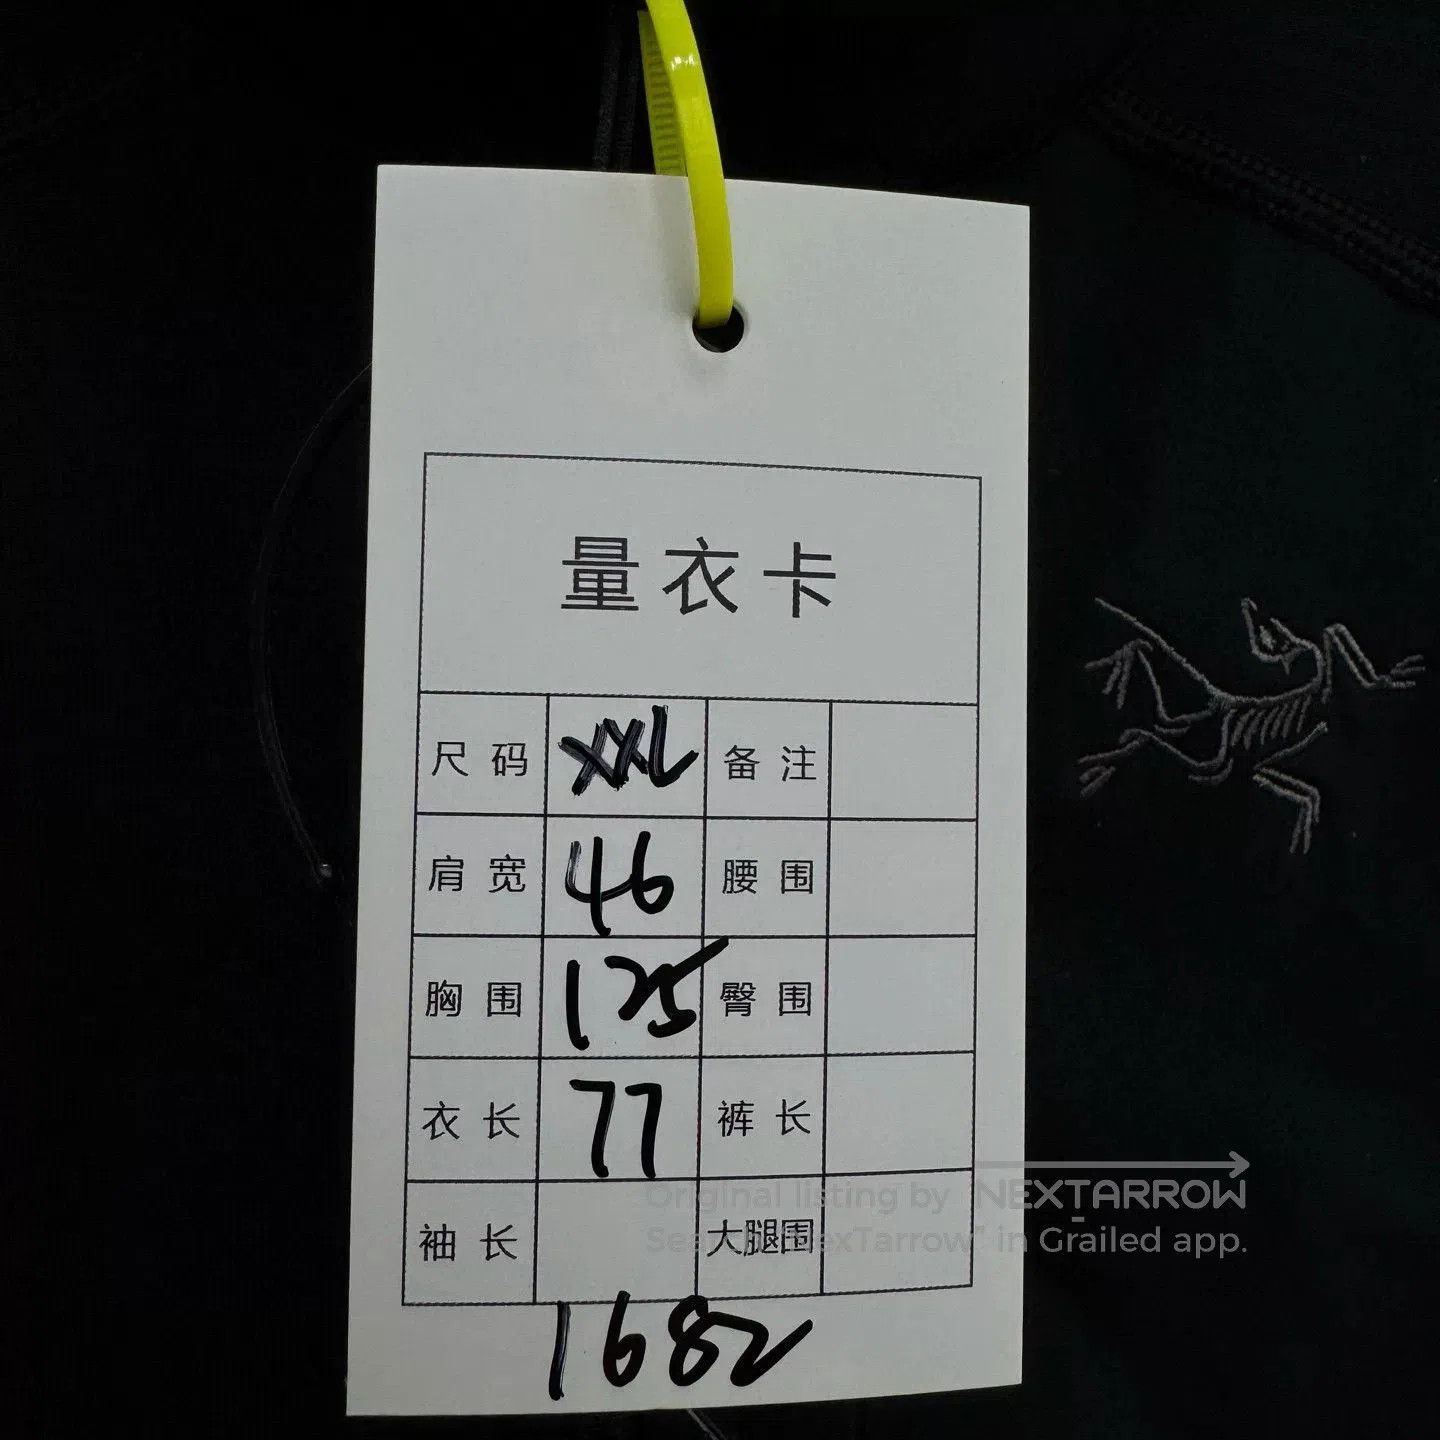 量衣卡
尺码 XXL 备注
肩宽 46 腰围
胸围 125 臀围
衣长 77 裤长
袖长 大腿围
Original listing by NEXTARROW
Search "NexTarrow" in Grailed app.